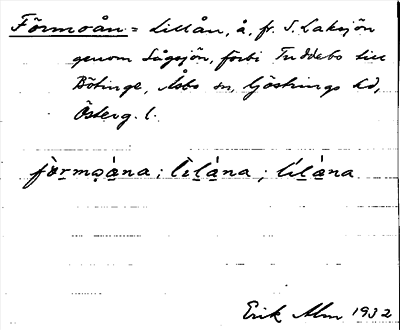 Förmoån = Lillån, å, fr. S. Laksjön
genom Sågsjön, förbi Tuddebo till
Bötinge, Åsbo sn, Göstrings hd,
Österg. l.
fö̀rmoå̀na; lìlǻna; lílå̀na
Erik Alm 1932